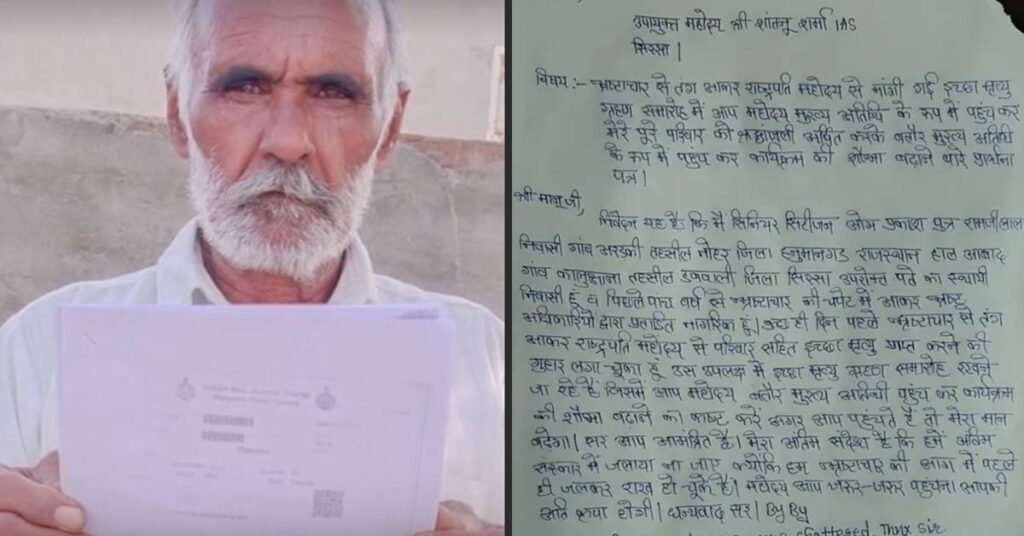 Haryana Government
उपायुक्त महोदय श्री शांतनू शर्मा IAS
सिरसा |
विषय :- भ्रष्टाचार से तंग आकर राष्ट्रपति महोदय से मांगी गई इच्छा मृत्यु
ग्रहण समारोह में आप महोदय मुख्य अतिथि के रूप मे पहुंच कर
मेरे पुरे परिवार को श्रद्धांजली अर्पित करके बतौर मुख्य अतिथि
के रूप मे पहुंच कर कार्यक्रम की शोभा बढ़ाने बारे प्रार्थना
पत्र |
श्री मान् जी,
निवेदन यह है कि मै सिनियर सिटीजन ओम प्रकाश पुत्र रामजीलाल
निवासी गांव अरडकी तहसील नोहर जिला हनुमानगढ़ राजस्थान हाल आबाद
गांव कालुआना तहसील डबवाली जिला सिरसा उपरोक्त पते का स्थायी
निवासी हूं व पिछले पांच वर्ष से भ्रष्टाचार की चपेट मे आकर भ्रष्ट
अधिकारियो द्वारा प्रताडित नागरिक हूं | कुछ ही दिन पहले भ्रष्टाचार से तंग
आकर राष्ट्रपति महोदय से परिवार सहित इच्छा मृत्यु प्राप्त करने की
गुहार लगा चुका हूं उस उपलक्ष मे इच्छा मृत्यु ग्रहण समारोह रखने
जा रहे है जिसमे आप महोदय बतौर मुख्य अतिथी पहुंच कर कार्यक्रम
की शोभा बढाने का कष्ट करें अगर आप पहुंचते है तो मेरा मान
बढ़ेगा | सर आप आमंत्रित है | मेरा अंतिम संदेश है कि हमे अंतिम
संस्कार में जलाया ना जाए क्योंकि हम भ्रष्टाचार की आग मे पहले
ही जलकर राख हो चुके है | महोदय आप जरूर-जरूर पहुंचना आपकी
अति कृपा होगी | धन्यवाद सर | By By
shattered, Thnx Sir